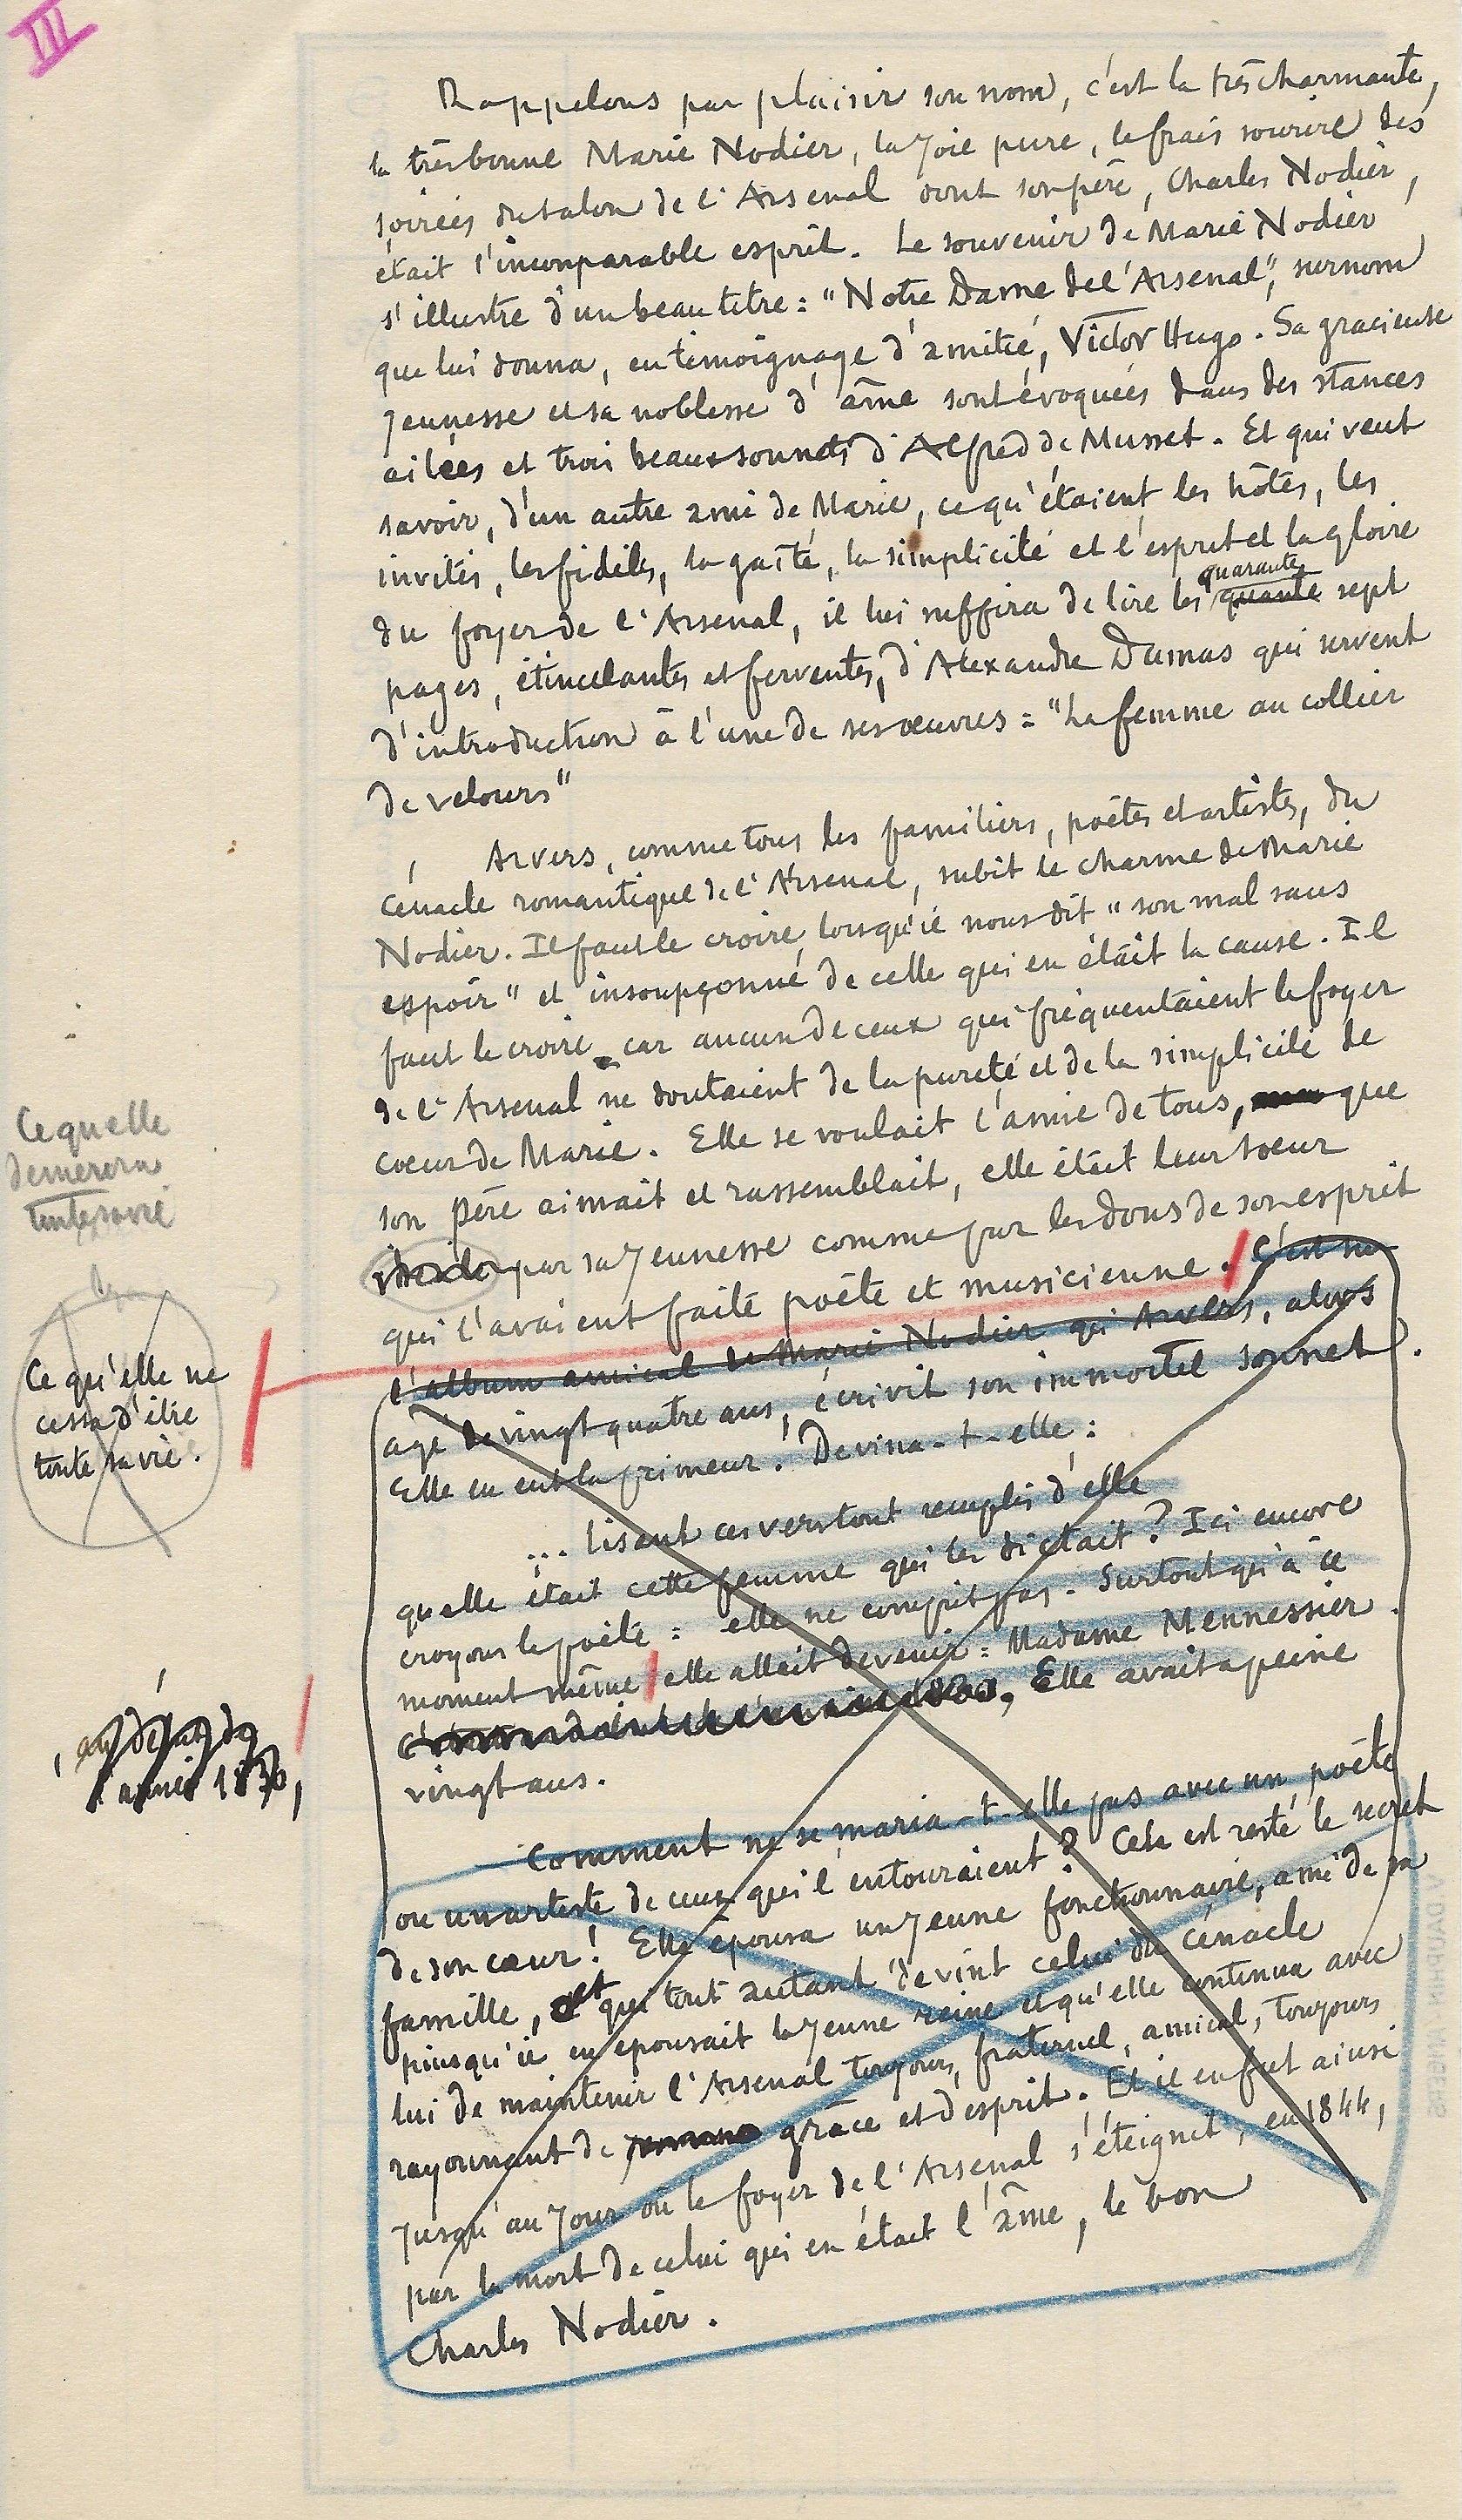 III
Rappelons par plaisir son nom, c'est la très charmante,
la très bonne Marie Nodier, la joie pure, le frais sourire des
soirées du salon de l'Arsenal dont son père, Charles Nodier,
était l'incomparable esprit. Le souvenir de Marie Nodier
s'illustre d'un beau titre : "Notre Dame de l'Arsenal", surnom
que lui donna, en témoignage d'amitié, Victor Hugo. Sa gracieuse
jeunesse et sa noblesse d'âme sont évoquées dans des stances
ailées et trois beaux sonnets d'Alfred de Musset. Et qui veut
savoir, d'un autre ami de Marie, ce qu'étaient les hôtes, les
invités, les fidèles, la gaîté, la simplicité et l'esprit et la gloire
quarante
du foyer de l'Arsenal, il lui suffira de lire les quante sept
pages, étincelantes et ferventes, d'Alexandre Dumas qui servent
d'introduction à l'une de ses œuvres = "La femme au collier
de velours"
Arvers, comme tous les familiers, poètes et artistes, du
Cénacle romantique de l'Arsenal, subit le charme de Marie
Nodier. Il faut le croire lorsqu'il nous dit "son mal sans
espoir" et insoupçonné de celle qui en était la cause. Il
faut le croire car aucun de ceux qui fréquentaient le foyer
de l'Arsenal ne doutaient de la pureté et de la simplicité de
cœur de Marie. Elle se voulait l'amie de tous, que
son père aimait et rassemblait, elle était leur sœur
par sa jeunesse comme par les dons de son esprit
qui l'avaient faite poète et musicienne. C'est sur
l'album amical de Marie Nodier qui Arvers, alors
agé de vingt quatre ans, écrivit son immortel sonnet.
Elle en eut la primeur. Devina-t-elle :
... lisant ces vers tout remplis d'elle
quelle était cette femme qui les dictait ? Ici encore
croyons le poète = elle ne comprit pas. Surtout qu'à ce
moment même elle allait devenir = Madame Mennessier.
Elle avait a peine
vingt ans.
Comment ne se maria-t-elle pas avec un poète
ou un artiste de ceux qui l'entouraient ? Cela est resté le secret
de son cœur ! Elle épousa un jeune fonctionnaire, ami de sa
famille, et qui tout autant devint celui du cénacle
puisqu'il en épousait la jeune reine et qu'elle continua avec
lui de maintenir l'Arsenal toujours fraternel, amical, toujours
rayonnant de grâce et d'esprit. Et il en fut ainsi
jusqu'au jour où le foyer de l'Arsenal s'éteignit, en 1844,
par la mort de celui qui en était l'âme, le bon
Charles Nodier.
Ce quelle
demerera
toute sa vie
Ce qu'elle ne
cessa d'être
toute sa vie.
année 1830,